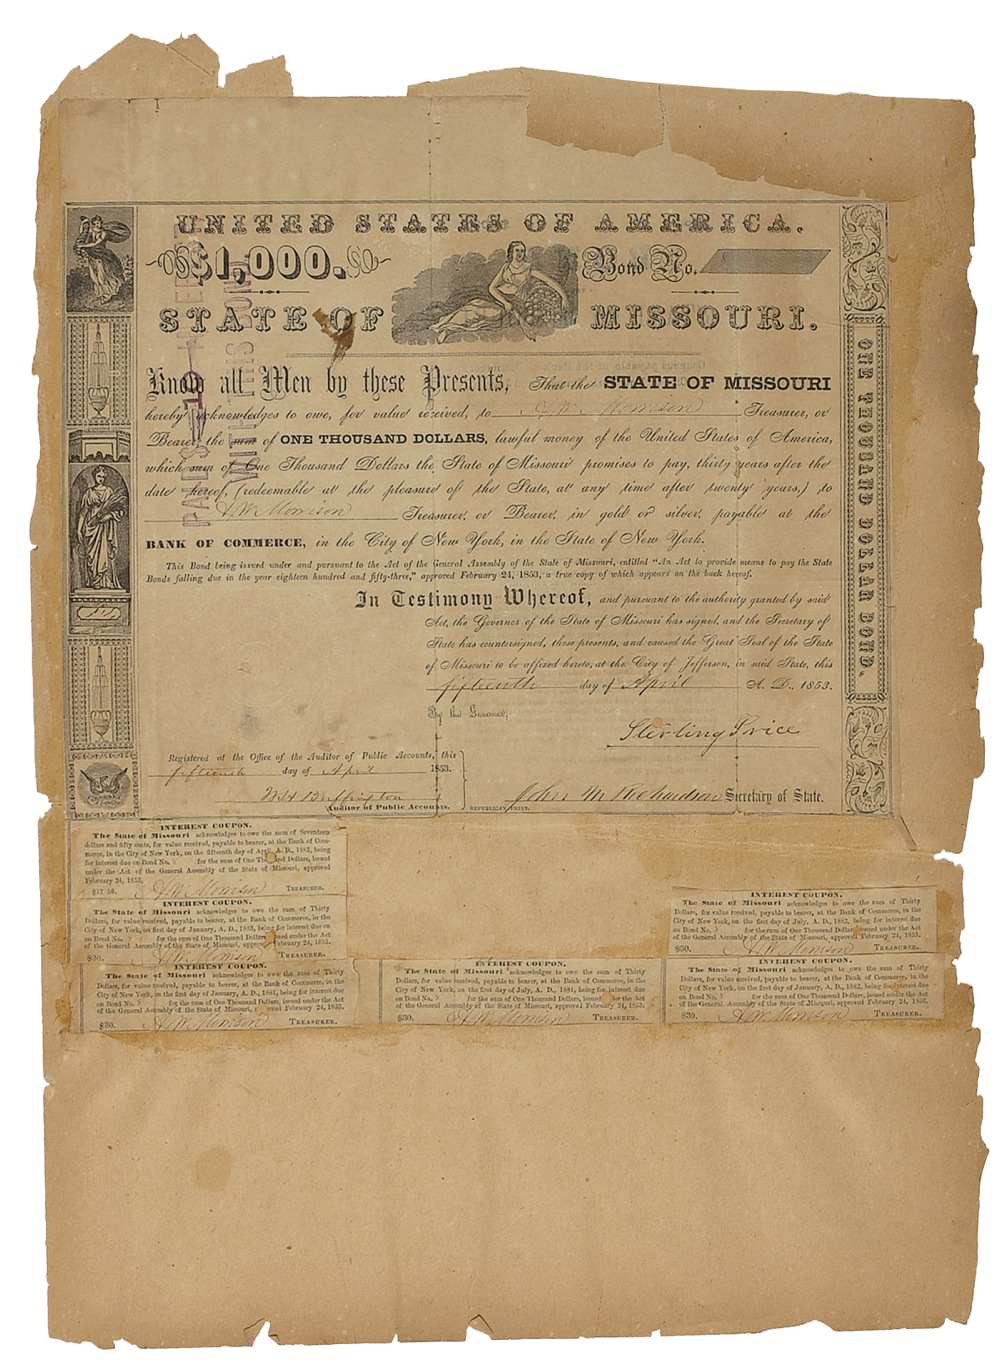 UNITED STATES OF AMERICA.
$1,000.
Bond No.
STATE OF MISSOURI.
Know all Men by these Presents, That the STATE OF MISSOURI
hereby acknowledges to owe, for value received, to A W Morrison Treasurer, or
Bearer, the sum of ONE THOUSAND DOLLARS, lawful money of the United States of America,
which sum of One Thousand Dollars the State of Missouri promises to pay, thirty years after the
date hereof, (redeemable at the pleasure of the State, at any time after twenty years,) to
A W Morrison Treasurer, or Bearer, in gold or silver, payable at the
BANK OF COMMERCE, in the City of New York, in the State of New York.
This Bond being issued under and pursuant to the Act of the General Assembly of the State of Missouri, entitled "An Act to provide means to pay the State
Bonds falling due in the year eighteen hundred and fifty-three," approved February 24, 1853, a true copy of which appears on the back hereof.
In Testimony Whereof, and pursuant to the authority granted by said
Act, the Governor of the State of Missouri has signed, and the Secretary of
State has countersigned, these presents, and caused the Great Seal of the State
of Missouri to be affixed hereto, at the City of Jefferson, in said State, this
fifteenth day of April A. D., 1853.
By the Governor,
Sterling Price
Registered at the Office of the Auditor of Public Accounts, this
fifteenth day of April 1853.
Wm H Buffington
Auditor of Public Accounts.
REPUBLICAN PRINT.
John M Richardson Secretary of State.
ONE THOUSAND DOLLAR BOND.
INTEREST COUPON.
The State of Missouri acknowledges to owe the sum of Seventeen
dollars and fifty cents, for value received, payable to bearer, at the Bank of Com-
merce, in the City of New York, on the fifteenth day of April, A. D., 1883, being
for interest due on Bond No. for the sum of One Thousand Dollars, issued
under the Act of the General Assembly of the State of Missouri, approved
February 24, 1853.
$17 50. A W Morrison TREASURER.
INTEREST COUPON.
The State of Missouri acknowledges to owe the sum of Thirty
Dollars, for value received, payable to bearer, at the Bank of Commerce, in the
City of New York, on first day of January, A. D., 1883, being for interest due
on Bond No. for the sum of One Thousand Dollars, issued under the Act
of the General Assembly of the State of Missouri, approved February 24, 1853.
$30. A W Morrison TREASURER.
INTEREST COUPON.
The State of Missouri acknowledges to owe the sum of Thirty
Dollars, for value received, payable to bearer, at the Bank of Commerce, in the
City of New York, on the first day of July, A. D., 1882, being for interest due
on Bond No. for the sum of One Thousand Dollars, issued under the Act
of the General Assembly of the State of Missouri, approved February 24, 1853.
$30. A W Morrison TREASURER.
INTEREST COUPON.
The State of Missouri acknowledges to owe the sum of Thirty
Dollars, for value received, payable to bearer, at the Bank of Commerce, in the
City of New York, on the first day of January, A. D., 1881, being for interest
due on Bond No for the sum of One Thousand Dollars, issued under the Act
of the General Assembly of the State of Missouri, approved February 24, 1853.
$30. A W Morrison TREASURER.
INTEREST COUPON.
The State of Missouri acknowledges to owe the sum of Thirty
Dollars, for value received, payable to bearer, at the Bank of Commerce, in the
City of New York, on the first day of July, A. D., 1881, being for interest due
on Bond No. for the sum of One Thousand Dollars, issued under the Act
of the General Assembly of the State of Missouri, approved February 24, 1853.
$30. A W Morrison TREASURER.
INTEREST COUPON.
The State of Missouri acknowledges to owe the sum of Thirty
Dollars, for value received, payable to bearer, at the Bank of Commerce, in the
City of New York, on the first day of January, A. D., 1882, being for interest due
on Bond No. for the sum of One Thousand Dollars, issued under the Act
of the General Assembly of the State of Missouri, approved February 24, 1853.
$30. A W Morrison TREASURER.